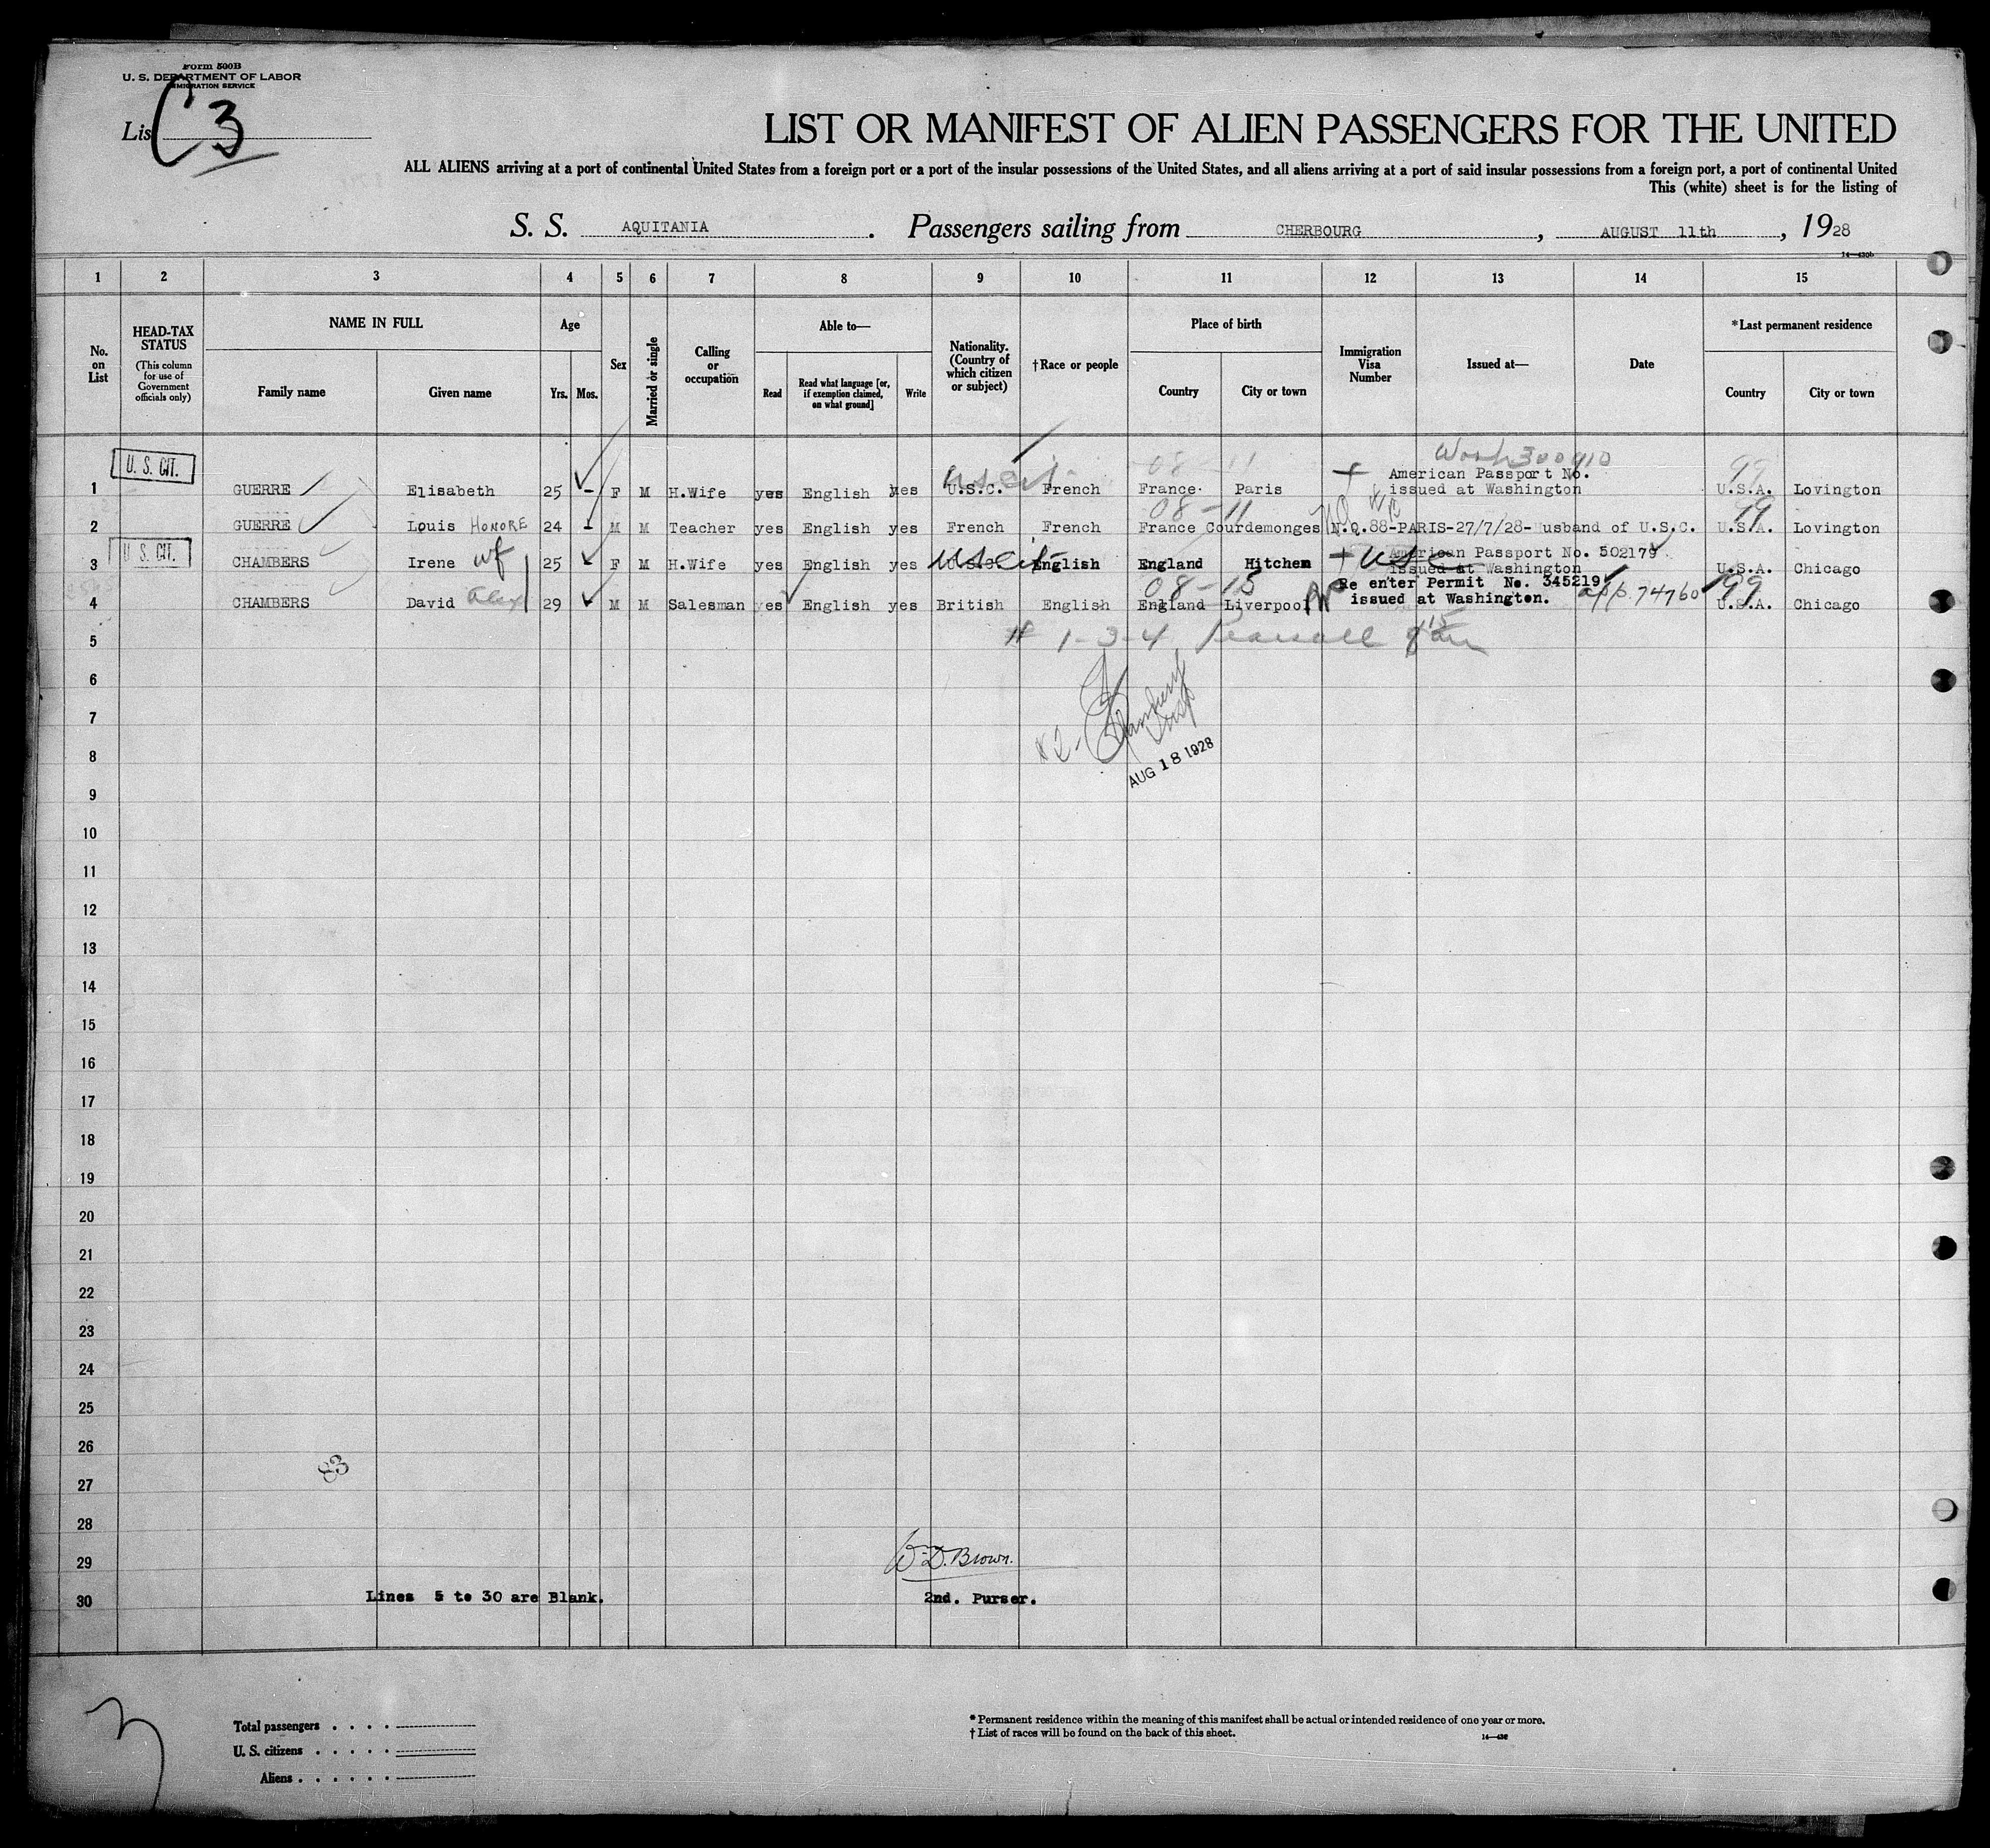 Form 500B
U. S. DEPARTMENT OF LABOR
IMMIGRATION SERVICE
List C 3
LIST OR MANIFEST OF ALIEN PASSENGERS FOR THE UNITED
ALL ALIENS arriving at a port of continental United States from a foreign port or a port of the insular possessions of the United States, and all aliens arriving at a port of said insular possessions from a foreign port, a port of continental United
This (white) sheet is for the listing of
S. S. AQUITANIA. Passengers sailing from CHERBOURG, AUGUST 11th, 1928
1 2 3 4 5 6 7 8 9 10 11 12 13 14 15
No. on List
HEAD-TAX STATUS
(This column for use of Government officials only)
NAME IN FULL
Family name
Given name
Age
Yrs.
Mos.
Sex
Married or single
Calling or occupation
Able to—
Read
Read what language [or, if exemption claimed, on what ground]
Write
Nationality. (Country of which citizen or subject)
†Race or people
Place of birth
Country
City or town
Immigration Visa Number
Issued at—
Date
*Last permanent residence
Country
City or town
U. S. CIT.
Wash 300910
American Passport No.
1 GUERRE Elisabeth 25 - F M H.Wife yes English yes U.S.C. US Cit French France Paris issued at Washington U.S.A. Lovington
08-11 99
2 GUERRE Louis HONORE 24 - M M Teacher yes English yes French French France Courdemonges N.Q.88-PARIS-27/7/28-Husband of U.S.C. U.S.A. Lovington
U. S. CIT.
American Passport No. 502179
3 CHAMBERS Irene wf 25 F M H.Wife yes English yes U.S.C. US Cit English England Hitchen USC issued at Washington U.S.A. Chicago
08-15 Re enter Permit No. 345219 99
4 CHAMBERS David Alex 29 M M Salesman yes English yes British English England Liverpool issued at Washington. 74760 U.S.A. Chicago
5 # 1-3-4
6
7
8
AUG 18 1928
9
10
11
12
13
14
15
16
17
18
19
20
21
22
23
24
25
26
83
27
28
29 W.D. Brown.
30 Lines 5 to 30 are Blank. 2nd. Purser.
Total passengers
U. S. citizens
Aliens
* Permanent residence within the meaning of this manifest shall be actual or intended residence of one year or more.
† List of races will be found on the back of this sheet.